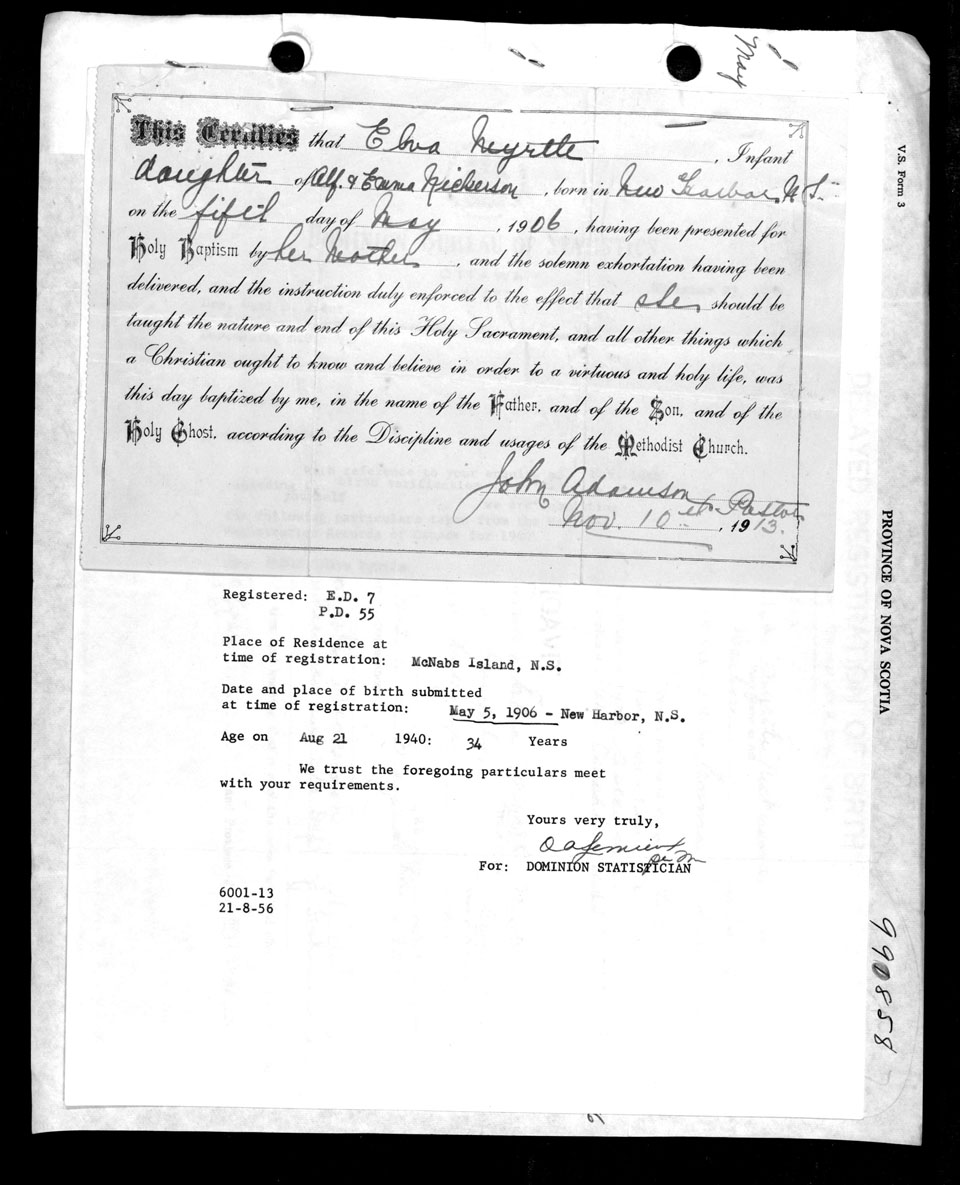 May
This Certifies that Elva Myrtle, Infant
daughter of Alf. & Emma Nickerson, born in New Harbor N.S.
on the fifth day of May, 1906, having been presented for
Holy Baptism by her Mother, and the solemn exhortation having been
delivered, and the instruction duly enforced to the effect that she should be
taught the nature and end of this Holy Sacrament, and all other things which
a Christian ought to know and believe in order to a virtuous and holy life, was
this day baptized by me, in the name of the Father, and of the Son, and of the
Holy Ghost, according to the Discipline and usages of the Methodist Church.
John Adamson
Pastor
Nov. 10th, 1913.
Registered: E.D. 7
P.D. 55
Place of Residence at
time of registration: McNabs Island, N.S.
Date and place of birth submitted
at time of registration: May 5, 1906 - New Harbor, N.S.
Age on Aug 21 1940: 34 Years
We trust the foregoing particulars meet
with your requirements.
Yours very truly,
For: DOMINION STATISTICIAN
6001-13
21-8-56
V.S. Form 3
PROVINCE OF NOVA SCOTIA
990858